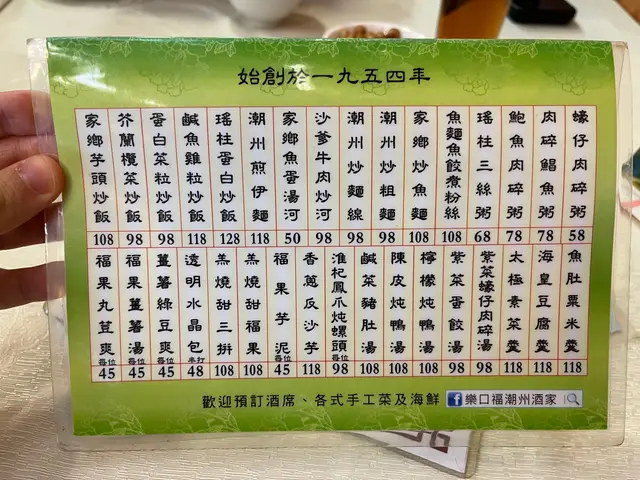 始創於一九五四年
蠔仔肉碎粥 58
肉碎鯧魚粥 78
鮑魚肉碎粥 78
瑤柱三絲粥 68
魚麵魚餃煮粉絲 108
家鄉炒魚麵 108
潮州炒粗麵 98
潮州炒麵線 98
沙爹牛肉炒河 98
家鄉魚蛋湯河 50
潮州煎伊麵 118
瑤柱蛋白炒飯 128
鹹魚雞粒炒飯 118
蛋白菜粒炒飯 98
芥蘭欖菜炒飯 98
家鄉芋頭炒飯 108
魚肚粟米羹 118
海皇豆腐羹 118
太極素菜羹 118
紫菜蠔仔肉碎湯 98
紫菜蛋餃湯 98
檸檬炖鴨湯 108
陳皮炖鴨湯 108
鹹菜豬肚湯 108
淮杞鳳爪炖螺頭 每位 98
香蔥反沙芋 118
福果芋泥 每位 45
羔燒甜福果 108
羔燒甜三拼 108
透明水晶包 半打 48
薑薯綠豆爽 每位 45
福果薑薯湯 每位 45
福果丸荁爽 每位 45
歡迎預訂酒席、各式手工菜及海鮮 f 樂口福潮州酒家